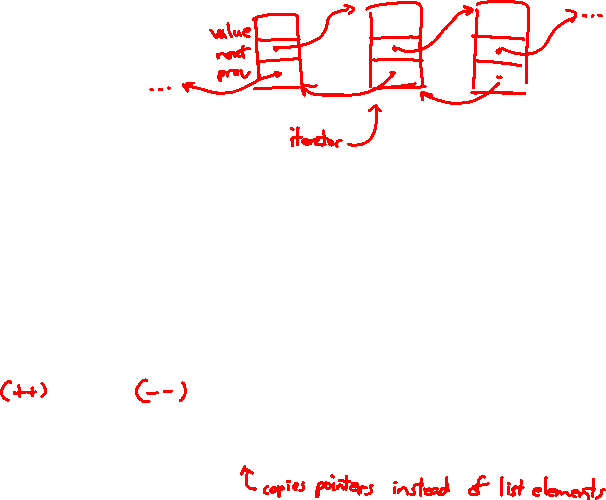 ...
value
next
prev
...
iterator
(++) (--)
copies pointers instead of list elements